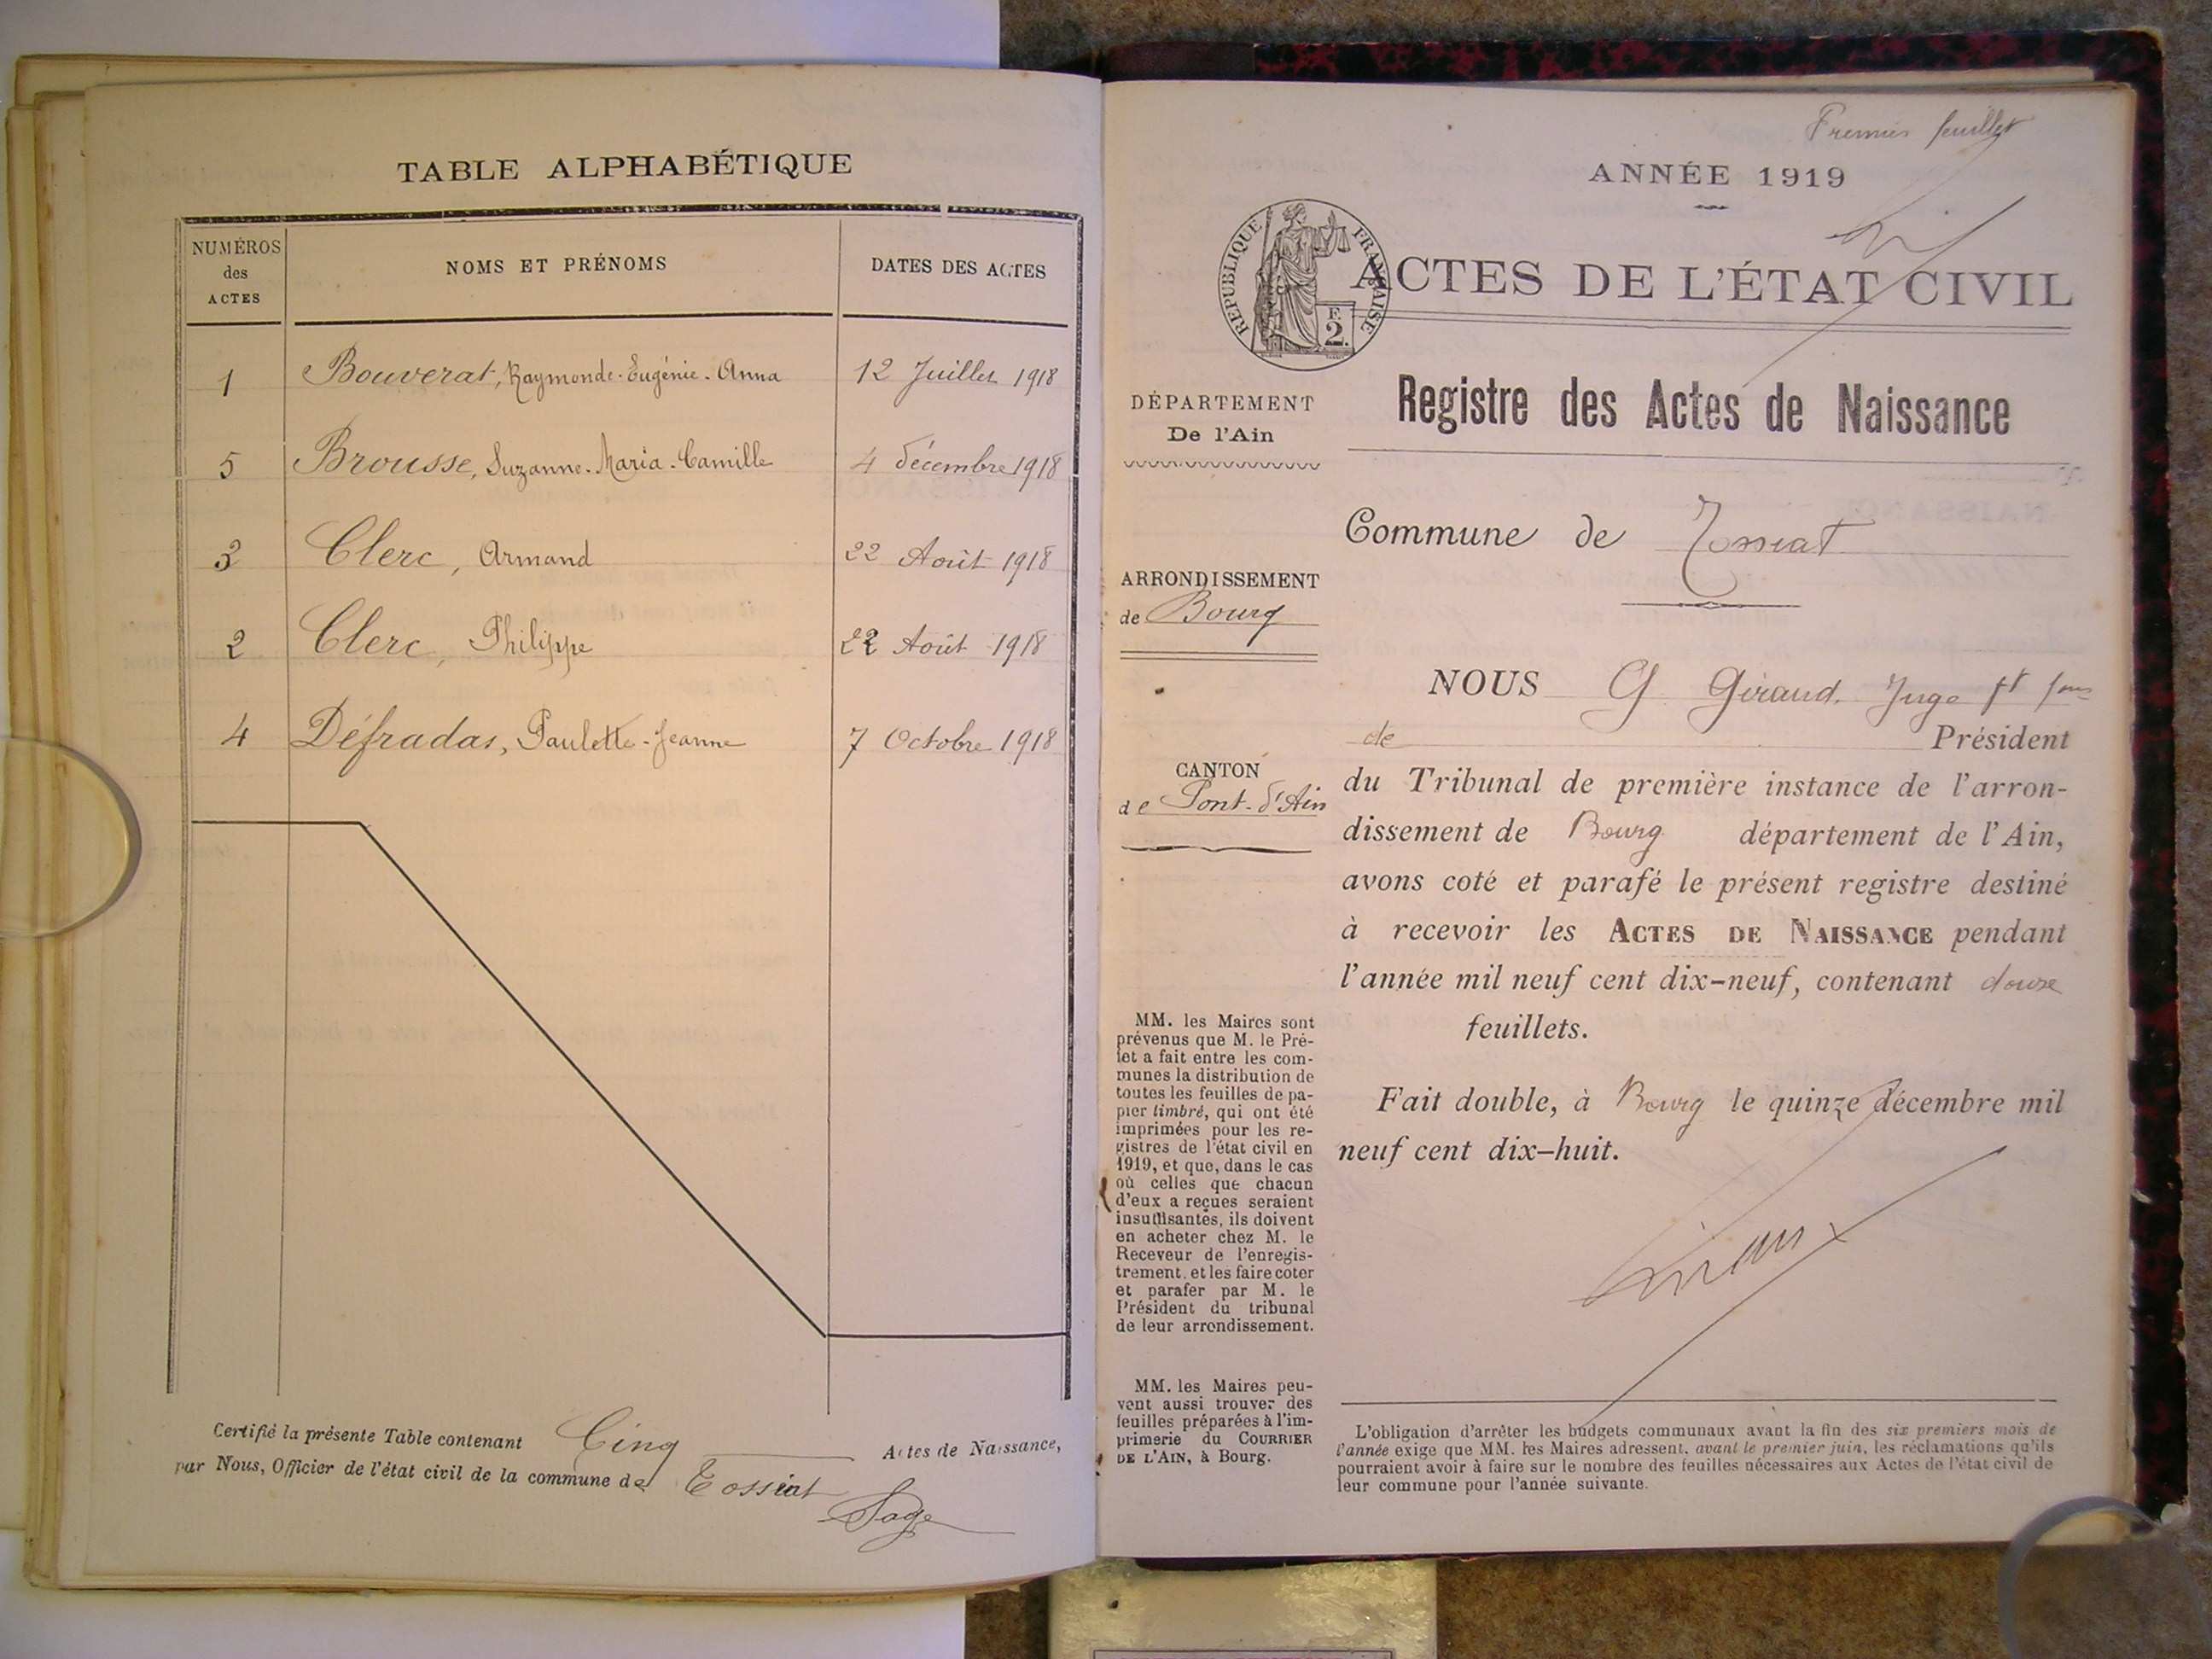 TABLE ALPHABÉTIQUE
NUMÉROS des ACTES
NOMS ET PRÉNOMS
DATES DES ACTES
1 Bouverat, Raymonde-Eugénie-Anna 12 Juillet 1918
5 Brousse, Suzanne-Maria-Camille 4 décembre 1918
3 Clerc, Armand 22 Août 1918
2 Clerc, Philippe 22 Août 1918
4 Défradas, Paulette-Jeanne 7 Octobre 1918
Certifié la présente Table contenant Cinq Actes de Naissance,
par Nous, Officier de l'état civil de la commune de Tossiat
Sage
Premier feuillet
ANNÉE 1919
RÉPUBLIQUE FRANÇAISE
F. 2.
ACTES DE L'ÉTAT CIVIL
Registre des Actes de Naissance
DÉPARTEMENT
De l'Ain
Commune de Tossiat
ARRONDISSEMENT
de Bourg
CANTON
de Pont-d'Ain
NOUS G Giraud, Juge
de Président
du Tribunal de première instance de l'arron-
dissement de Bourg département de l'Ain,
avons coté et parafé le présent registre destiné
à recevoir les ACTES DE NAISSANCE pendant
l'année mil neuf cent dix-neuf, contenant douze
feuillets.
Fait double, à Bourg le quinze décembre mil
neuf cent dix-huit.
MM. les Maires sont
prévenus que M. le Pré-
fet a fait entre les com-
munes la distribution de
toutes les feuilles de pa-
pier timbré, qui ont été
imprimées pour les re-
gistres de l'état civil en
1919, et que, dans le cas
où celles que chacun
d'eux a reçues seraient
insuffisantes, ils doivent
en acheter chez M. le
Receveur de l'enregis-
trement, et les faire coter
et parafer par M. le
Président du tribunal
de leur arrondissement.
MM. les Maires peu-
vent aussi trouver des
feuilles préparées à l'im-
primerie du COURRIER
DE L'AIN, à Bourg.
L'obligation d'arrêter les budgets communaux avant la fin des six premiers mois de
l'année exige que MM. les Maires adressent, avant le premier juin, les réclamations qu'ils
pourraient avoir à faire sur le nombre des feuilles nécessaires aux Actes de l'état civil de
leur commune pour l'année suivante.